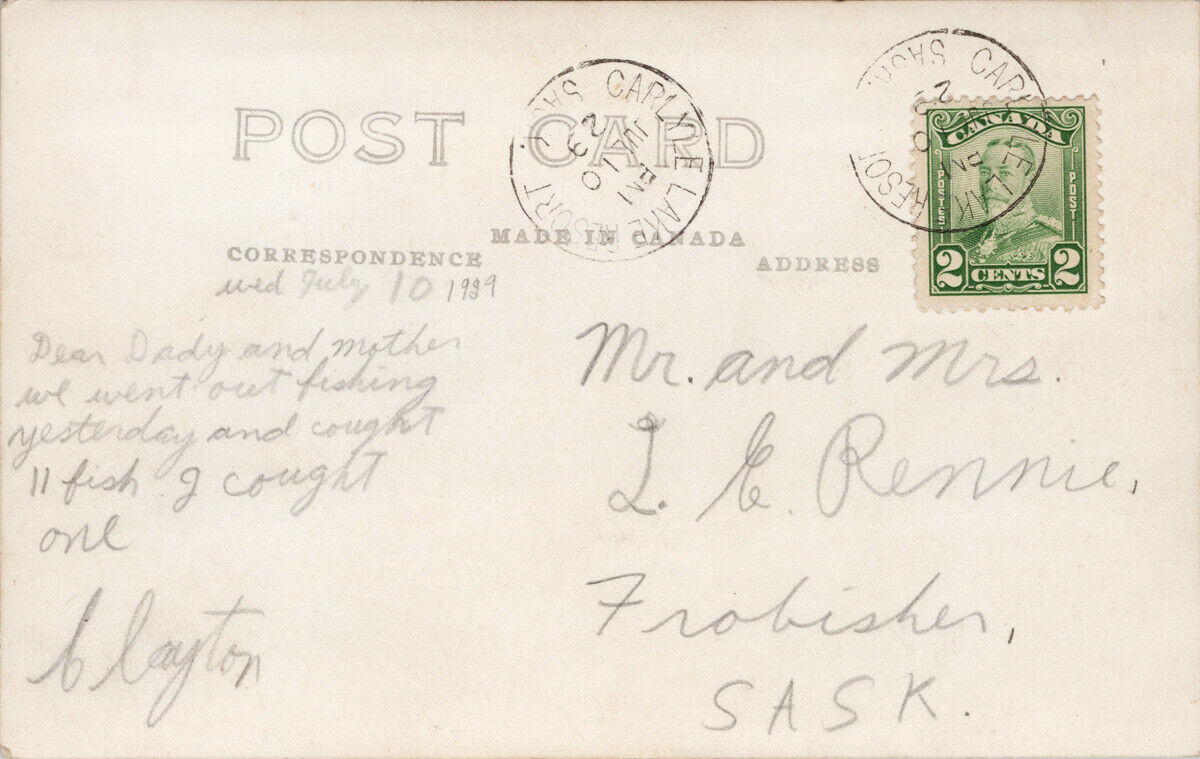 POST CARD
CARLYLE LAKE RESORT
SASK.
PM
JUL 10
29
CARLYLE LAKE RESORT
SASK.
PM
CANADA
POSTES
POSTES
2 CENTS 2
MADE IN CANADA
CORRESPONDENCE
ADDRESS
wed July 10 1929
Dear Dady and mother
we went out fishing
yesterday and cought
11 fish. I cought
one
Clayton
Mr. and Mrs.
L. E. Rennie,
Frobisher,
SASK.